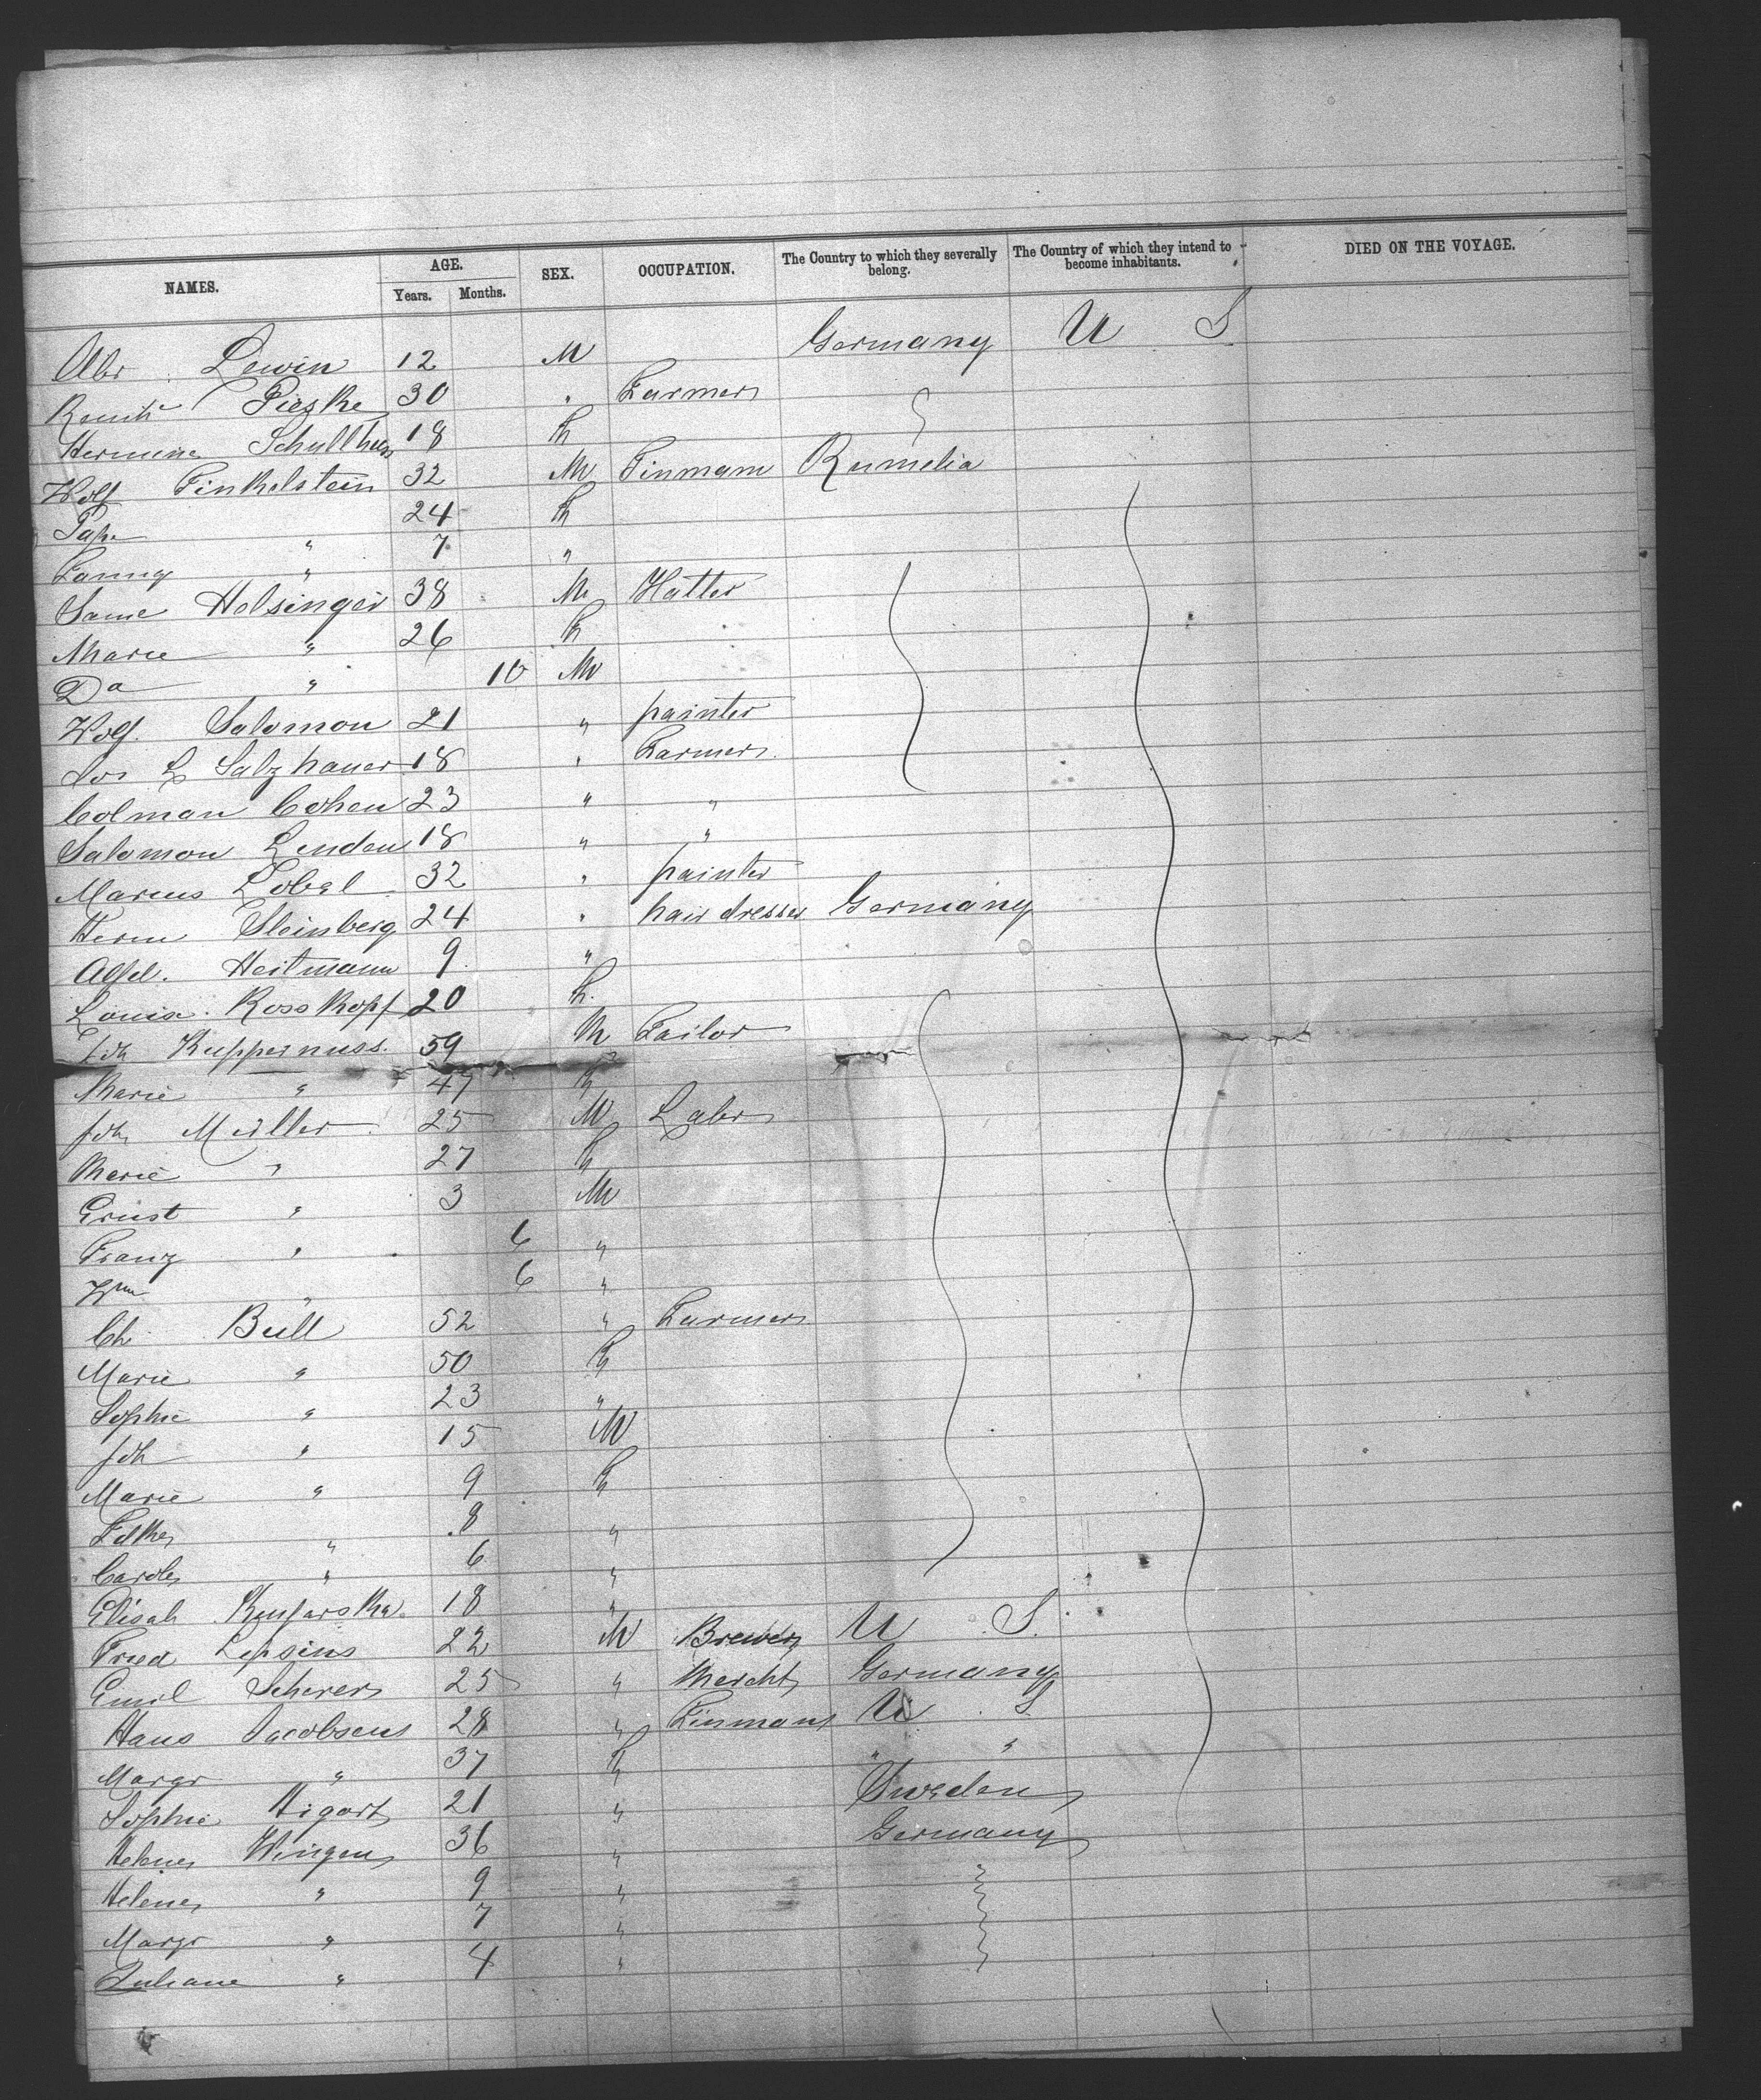 NAMES. AGE. Years. Months. SEX. OCCUPATION. The Country to which they severally belong. The Country of which they intend to become inhabitants. DIED ON THE VOYAGE.
Abr Lewin 12 M Germany U S
Pieske 30 " Farmer
Hermine 18 F
Wolf Finkelstein 32 M Tinmann Rumelia
24 F
Fanny " 7 "
Same Helsinger 38 M Hatter
Marie " 26 F
Da " 10 M
Wolf. Salomon 21 " painter
Jos L Salzhauer 18 " Farmer
Colman Cohen 23 " "
Salomon Lenden 18 " "
Marcus Lobel 32 " painter
Herm Steinberg 24 " hairdresser Germany
Alfd. Heitmann 9 "
Louise Rosskopf 20 F
Joh Kuppernuss. 59 M Tailor
Marie " 47 F
Joh Müller 25 M Labr
Marie " 27 F
Ernst " 3 M
Franz " 6 "
Wm " 6 "
Ch Büll 52 " Farmer
Marie " 50 F
Sophie " 23 "
Joh " 15 M
Marie " 9 F
" 8 "
Carole " 6 "
Elisab 18 "
Fried Lepsius 22 M Brewer U S
Emil Scherer 25 " Mercht Germany
Hans Jacobsen 28 " U S
Margr " 37 F " "
Sophie 21 " Sweden
Helene Wingen 36 " Germany
Helene " 9 "
Margr " 7 "
Juliane " 4 "